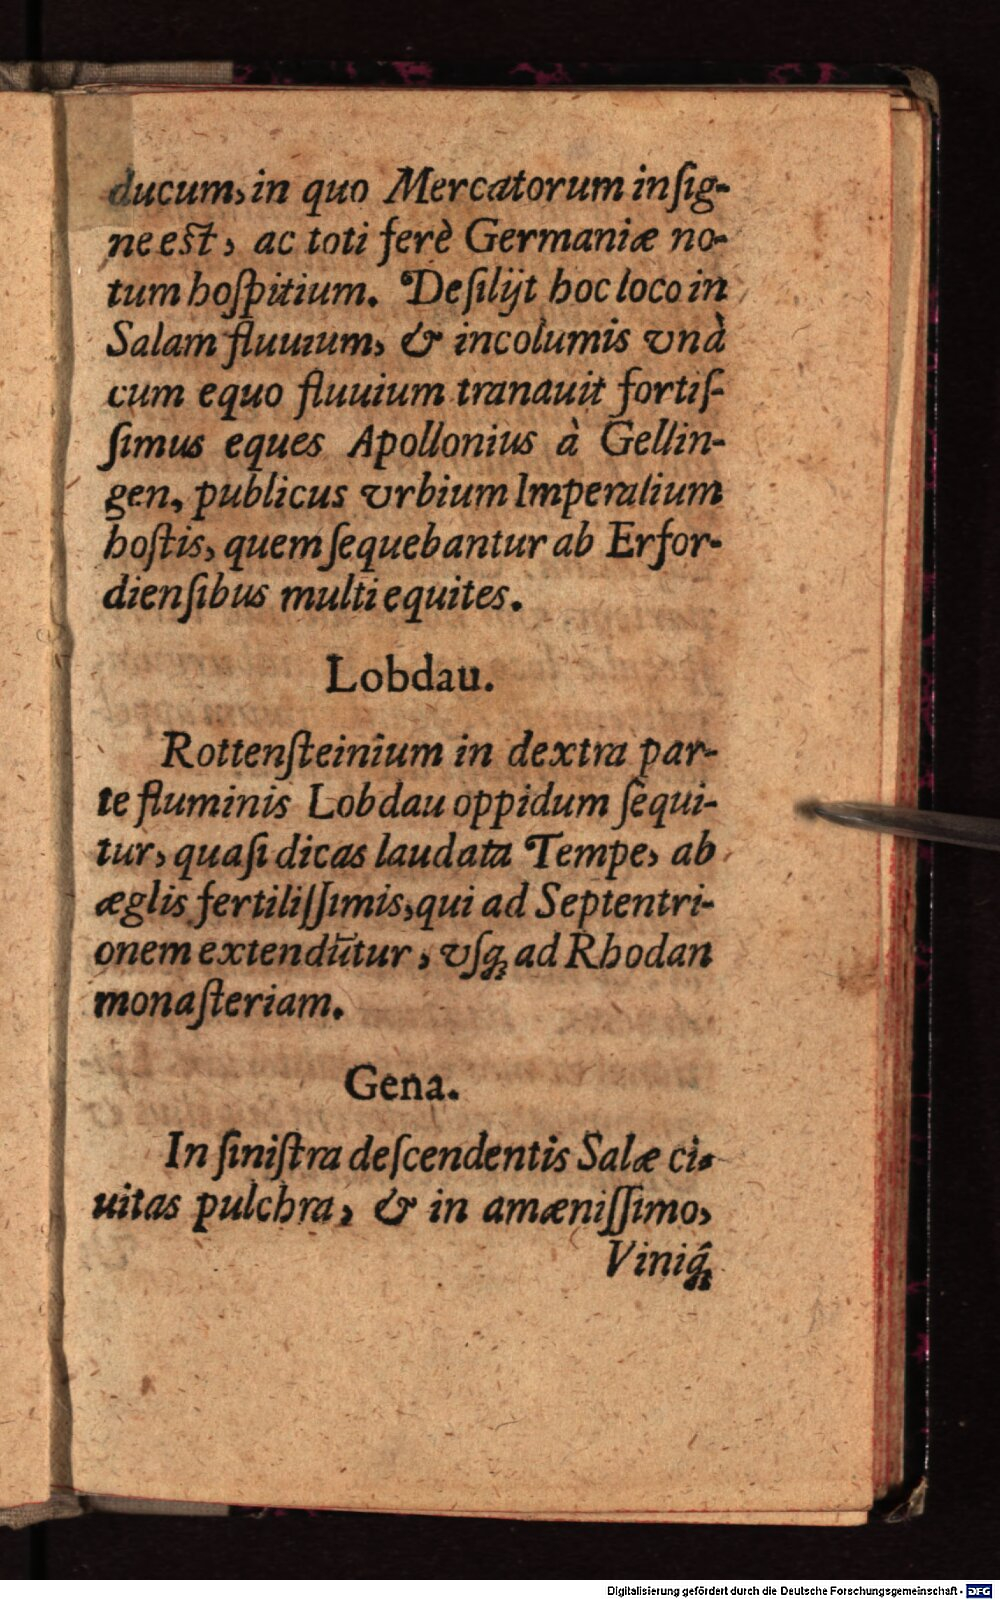 ducum, in quo Mercatorum inſig-
ne eſt, ac toti ferè Germaniæ no-
tum hoſpitium. Deſilijt hoc loco in
Salam fluuium, & incolumis vnà
cum equo fluuium tranauit fortiſ-
ſimus eques Apollonius à Gellin-
gen, publicus vrbium Imperalium
hoſtis, quem ſequebantur ab Erfor-
dienſibus multi equites.
Lobdau.
Rottenſteinium in dextra par-
te fluminis Lobdau oppidum ſequi-
tur, quaſi dicas laudata Tempe, ab
æglis fertiliſſimis, qui ad Septentri-
onem extendūtur, vſq́ꝫ ad Rhodan
monaſteriam.
Gena.
In ſiniſtra deſcendentis Salæ ci-
uitas pulchra, & in amæniſſimo,
Viniq́ꝫ
Digitalisierung gefördert durch die Deutsche Forschungsgemeinschaft - DFG